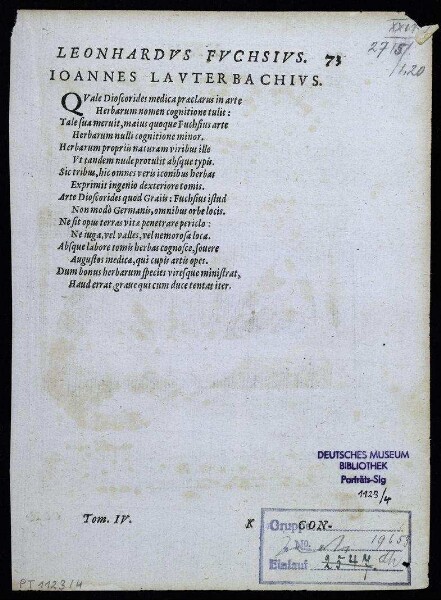 XXVI
27181
1.20
LEONHARDVS FVCHSIVS. 73
IOANNES LAVTERBACHIVS.
QVale Dioscorides medica praeclarus in arte
Herbarum nomen cognitione tulit:
Tale sua meruit, maius quoque Fuchsius arte
Herbarum nulli cognitione minor.
Herbarum propriis naturam viribus illo
Vt tandem nude protulit absque typis.
Sic tribus, hic omnes veris iconibus herbas
Exprimit ingenio dexteriore tomis.
Arte Dioscorides quod Graiis: Fuchsius istud
Non modò Germanis, omnibus orbe locis.
Ne sit opus terras vitae penetrare periclo:
Ne iuga, vel valles, vel nemorosa loca.
Absque labore tomis herbas cognosce, fouere
Augustos medica, qui cupis artis oper.
Dum bonus herbarum species viresque ministrat,
Haud errat, graue qui cum duce tentat iter.
DEUTSCHES MUSEUM
BIBLIOTHEK
Porträts-Sig
1123/4
Tom. IV. K CON-
Grup
No. 1965
Einlauf 2547
PT 1123/4